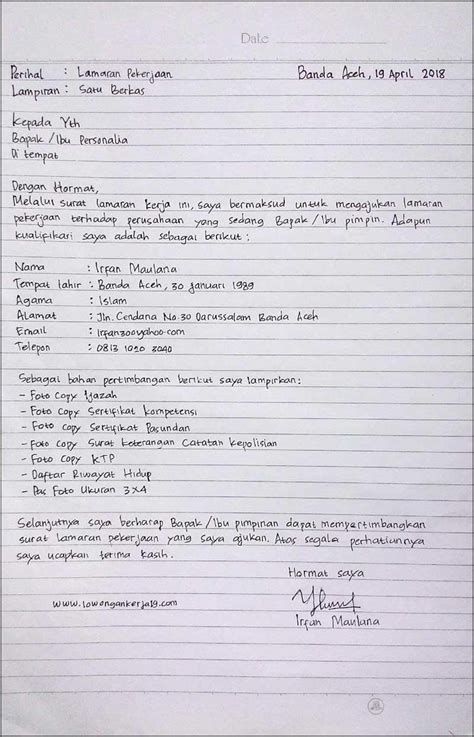 Date
Perihal : Lamaran Pekerjaan Banda Aceh, 19 April 2018
Lampiran : Satu Berkas
Kepada Yth
Bapak / Ibu Personalia
Di tempat
Dengan Hormat,
Melalui surat lamaran kerja ini, saya bermaksud untuk mengajukan lamaran
pekerjaan terhadap perusahaan yang sedang Bapak / Ibu pimpin. Adapun
kualifikasi saya adalah sebagai berikut :
Nama : Irfan Maulana
Tempat lahir : Banda Aceh, 30 Januari 1989
Agama : Islam
Alamat : Jln. Cendana No.30 Darussalam Banda Aceh
Email : Irfan30@yahoo.com
Telepon : 0813 1020 3040
Sebagai bahan pertimbangan berikut saya lampirkan:
- Foto Copy Ijazah
- Foto Copy Sertifikat Kompetensi
- Foto Copy Sertifikat Pasundan
- Foto Copy Surat Keterangan Catatan Kepolisian
- Foto Copy KTP
- Daftar Riwayat Hidup
- Pas Foto Ukuran 3x4
Selanjutnya saya berharap Bapak / Ibu pimpinan dapat mempertimbangkan
surat lamaran pekerjaan yang saya ajukan. Atas segala perhatiannya
saya ucapkan terima kasih.
Hormat saya
www.lowongankerja19.com
Irfan Maulana